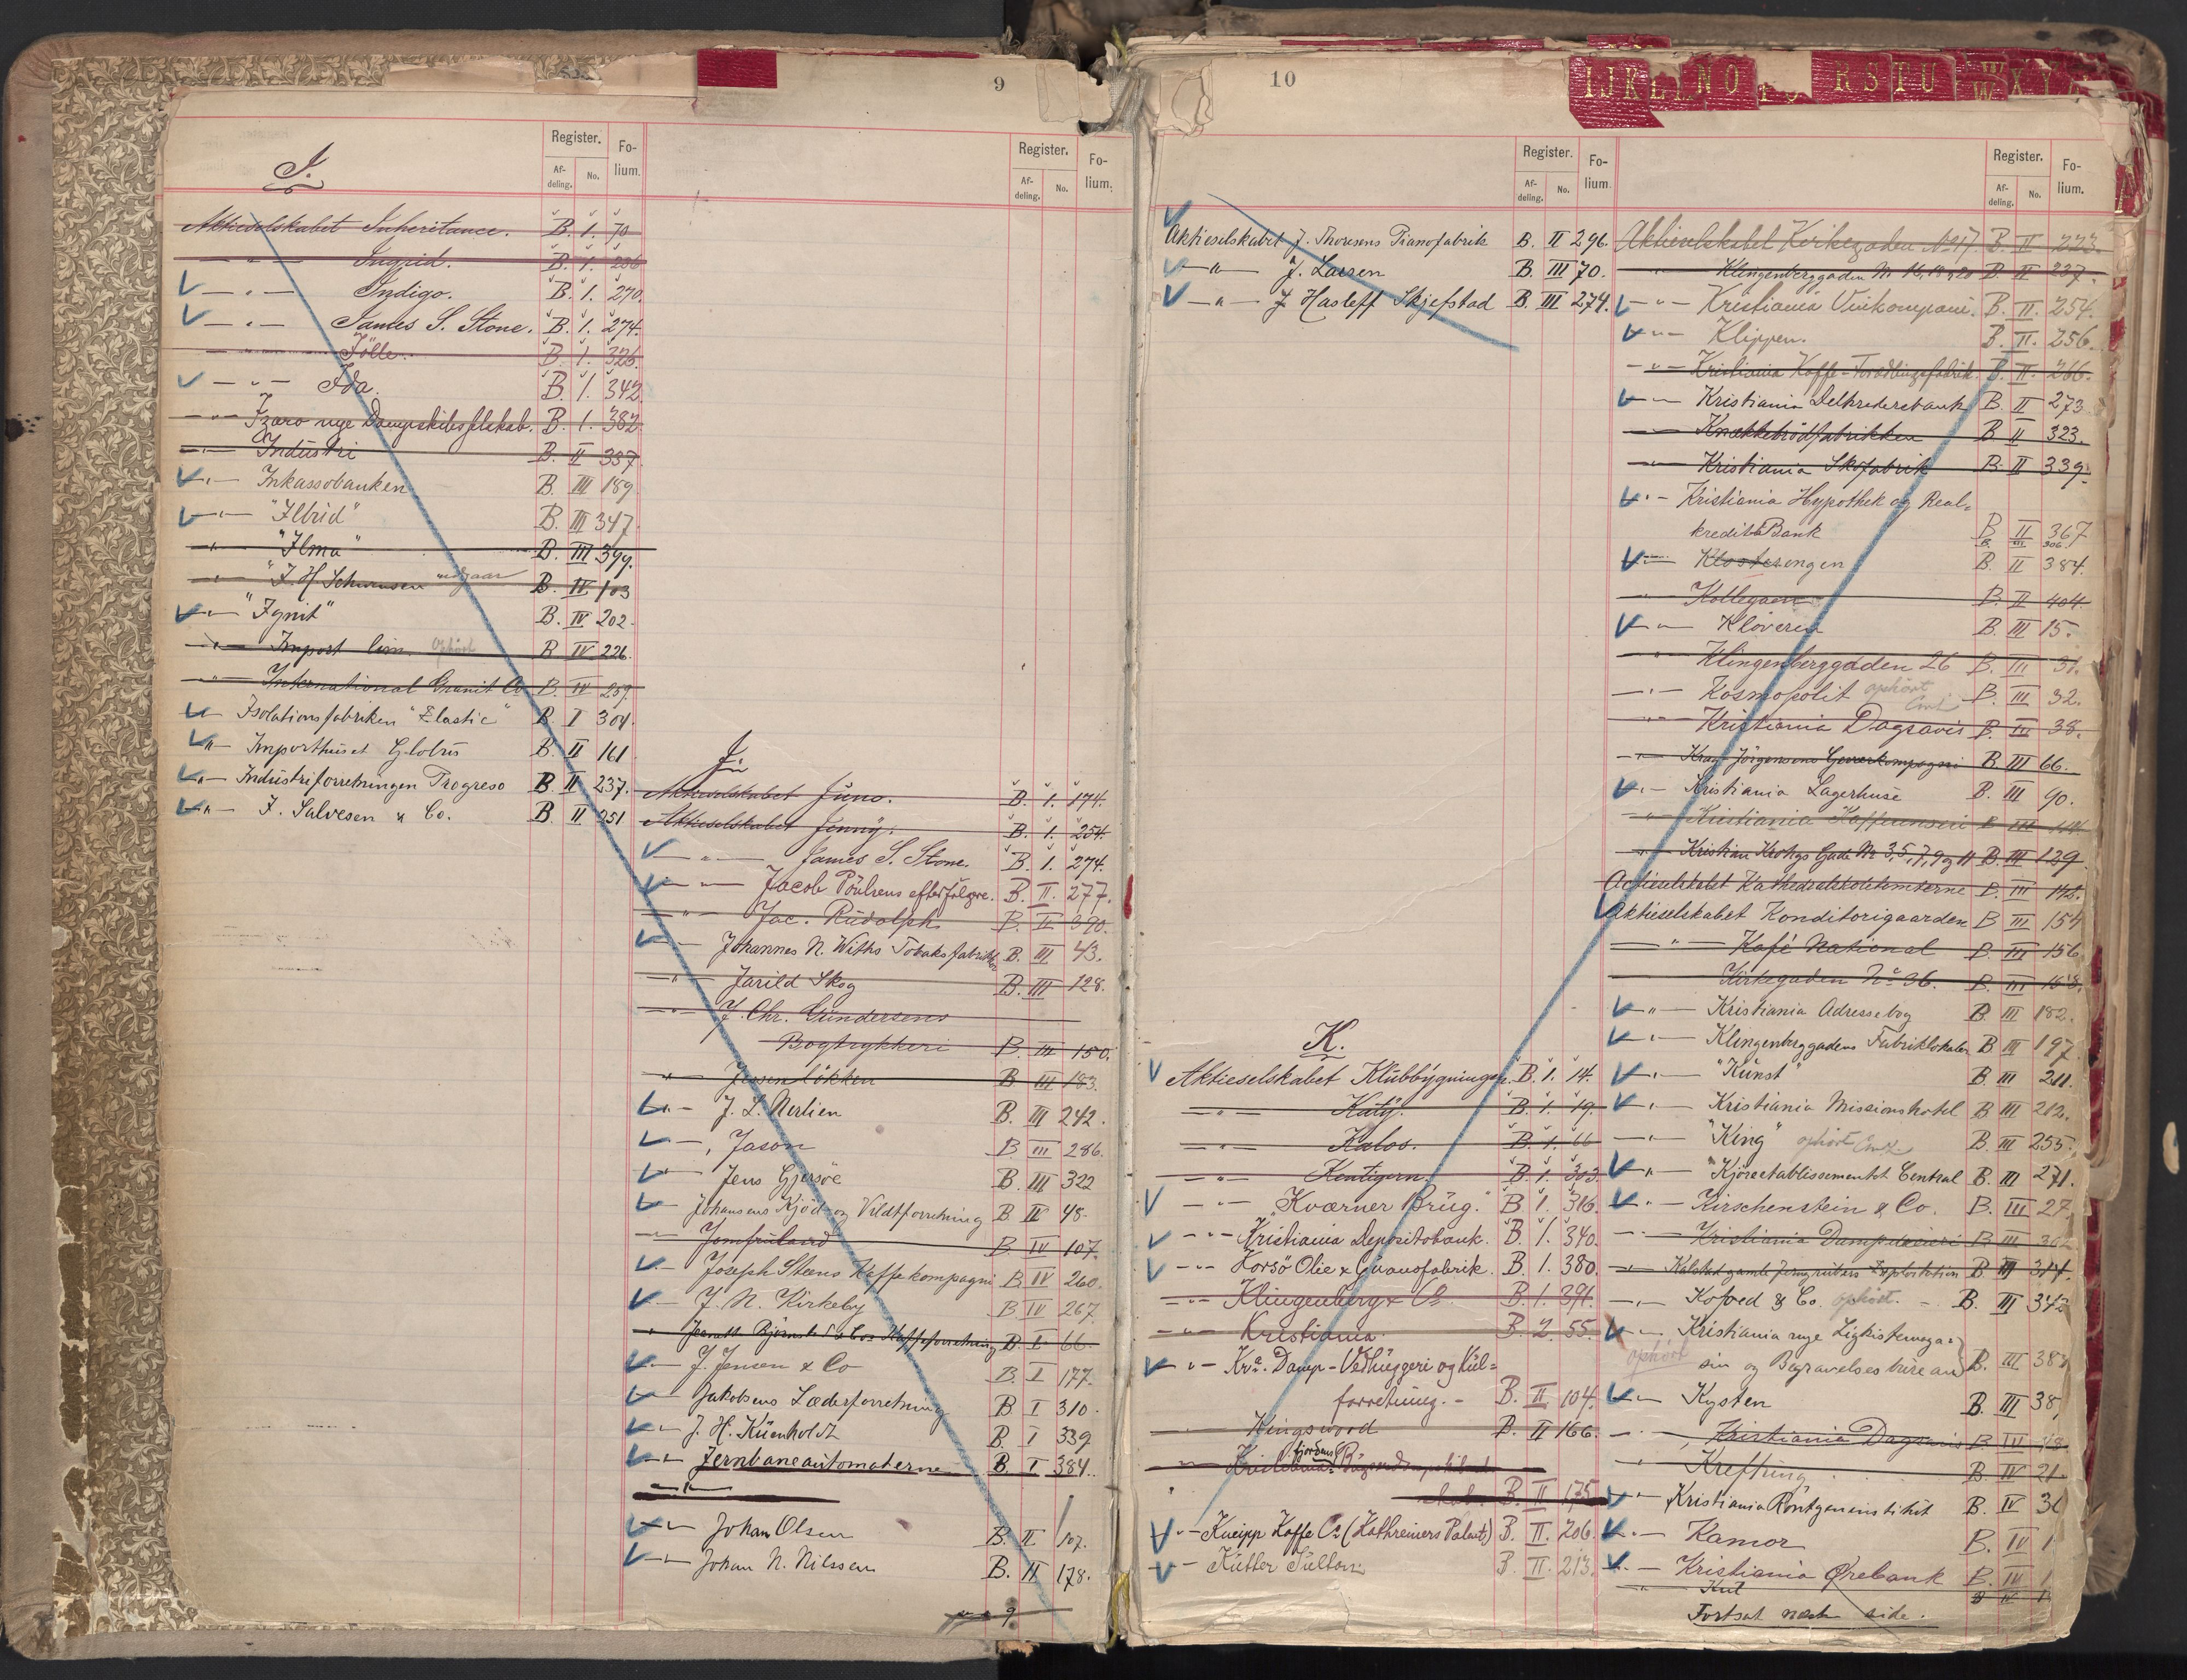 9
Register. Fo-
Af-
deling. No. lium.
I.
Aktieselskabet Inheritance. B. 1. 70
— " — Ingrid. B. 1. 206
— " — Indigo. B. 1. 270.
— " — James S. Stone. B. 1. 274.
Jölle. B. 1. 326.
— " — Ida. B. 1. 342.
— " — Izaro nye Dampskibsselskab. B. 1. 382.
— " — Industri B. II 337.
— " — Inkassobanken B. III 189
— " — "Ilbrid" B. III 347.
— " — "Ilma" B. III 399.
— " — "I. H. B. IV 103
— " — "Ignit" B. IV 202.
— " — Import lim. ophört B IV 226.
— " — International Granit Co B. IV 259.
— " — Isolationsfabriken "Elastic" B. I 304.
— " — Importhuset Globus B. II 161
— " — Industriforretningen Progreso B. II 237.
— " — I. Salvesen & Co. B. II 251
Register. Fo-
Af-
deling. No. lium.
J.
Aktieselskabet Juno. B. 1. 174.
Aktieselskabet Jenny. B. 1. 254.
— " — James S. Stone. B. 1. 274.
— " — Jacob Pöulsens efterfölgere. B. II. 277.
— " — Jac. Rudolph B. II 390.
— " — Johannes N. Withs Tobaksfabrikker B. III 43.
— " — Jarild Skog B. III 128.
— " — J. Chr. Gundersens
Bogtrykkeri B. III 150.
— " — Jessenlökken B III 183.
— " — J. L. Nerlien B. III 242.
— " — Jason B III 286.
— " — Jens Gjersöe B. III 322
— " — Johansens Kjöd- og Vildtforretning B. IV 48.
— " — Jomfruland B. IV 107.
— " — Joseph Steens Kaffekompagni B IV 260.
— " — J. N. Kirkeby B. IV 267.
Kaffeforretning B. I 66.
— " — J. Jensen & Co B. I 177.
— " — Jakobsens Læderforretning B I 310.
— " — J. H. Küenholdt B. I 339
— " — Jernbaneautomaterne B. I 384.
— " —
— " — Johan Olsen B. II 107.
— " — Johan N. Nilssen B. II 178.
9.
10
IJKL NO RSTU W X
Register. Fo-
Af-
deling. No. lium.
Aktieselskabet J. Thoresens Pianofabrik B. II 296.
— " — J. Larsen B. III 70.
— " — J Hasleff Skjefstad B. III 274.
K.
Aktieselskabet Klubbygningen. B. 1. 14.
— " — Katy. B. 1. 19.
— " — Kalos. B. 1. 66
— " — Kentigern. B. 1. 303.
— " — "Kværner Brug." B 1. 316.
— " — Kristiania Depositobank. B. 1. 340.
— " — Korsö Olie & Guanofabrik. B. 1. 380.
— " — Klingenberg & Co. B. 1. 391.
— " — Kristiania. B. 2. 55.
— " — Kra. Damp-Vedhuggeri og Kul=
forretning. — B. II 104.
Kingswood B. II 166.
fjordens
B. II 175
— " — Kneipp Kaffe Co (Kathreiners Patent) B. II. 206.
— " — Kutter Sultan B. II. 213.
Register. Fo-
Af-
deling. No. lium.
Aktieselskabet Kirkegaden No 17 B. II 223.
— " — Klingenberggaden Nr 16, 18 og 20 B. II 237.
— " — Kristiania Vinkompani. B. II. 254.
— " — Klippen. B. II. 256.
— " — Kristiania Kaffe-Forædlingsfabrik. B. II. 266.
— " — Kristiania Delkrederebank B. II 273
— " — Knækkebrödfabrikken B. II 323.
— " — Kristiania Skofabrik B. II 339.
— " — Kristiania Hypothek og Real=
kreditbank B II 367
B. III 306
— " — Klosterengen B. II 384.
— " — Kollegaen B. II 404.
— " — Klöveren B. III 15.
— " — Klingenberggaden 26 B. III 31.
— " — Kosmopolit ophört B. III 32.
— " — Kristiania Dagsavis B. III 38.
— " — Jörgensens B. III 66.
— " — Kristiania Lagerhuse B. III 90.
— " — Kristiania B III 114
— " — Kristian Krohgs Gade Nr 3, 5, 7, 9 og 11 B. III 129.
Actieselskabet Kathedralskoletomterne B. III 142.
Aktieselskabet Konditorigaarden B III 154
— " — Kafé National B. III 156
Kirkegaden No 36. B. III 163.
— " — Kristiania Adressebog B. III 182.
— " — Klingenberggadens Fabriklokaler B III 197
— " — "Kunst" B. III 211.
— " — Kristiania Missionshotel B III 212.
— " — "King" ophört B. III 255.
— " — "Kjöreetablissementet Central B. III 271.
— " — Kirschenstein & Co. B. III 27
— " — Kristiania B. III 36
— " — Kalstad gamle Jerngrubers Exploitation B. III 314.
— " — Kofoed & Co. ophört. — B. III 342
— " — Kristiania nye Ligkistemaga=
ophört
sin og Begravelsesbureau B. III 38
— " — Kysten B. III 38
— " — Kristiania Dagsavis B. IV 18
— " — Krefting B. IV 21
— " — Kristiania Röntgeninstitut B. IV 3
— " — Kamor B. IV 1
— " — Kristiania Ørebank B. IV 1
Knut B IV 1
Fortsat næste side.